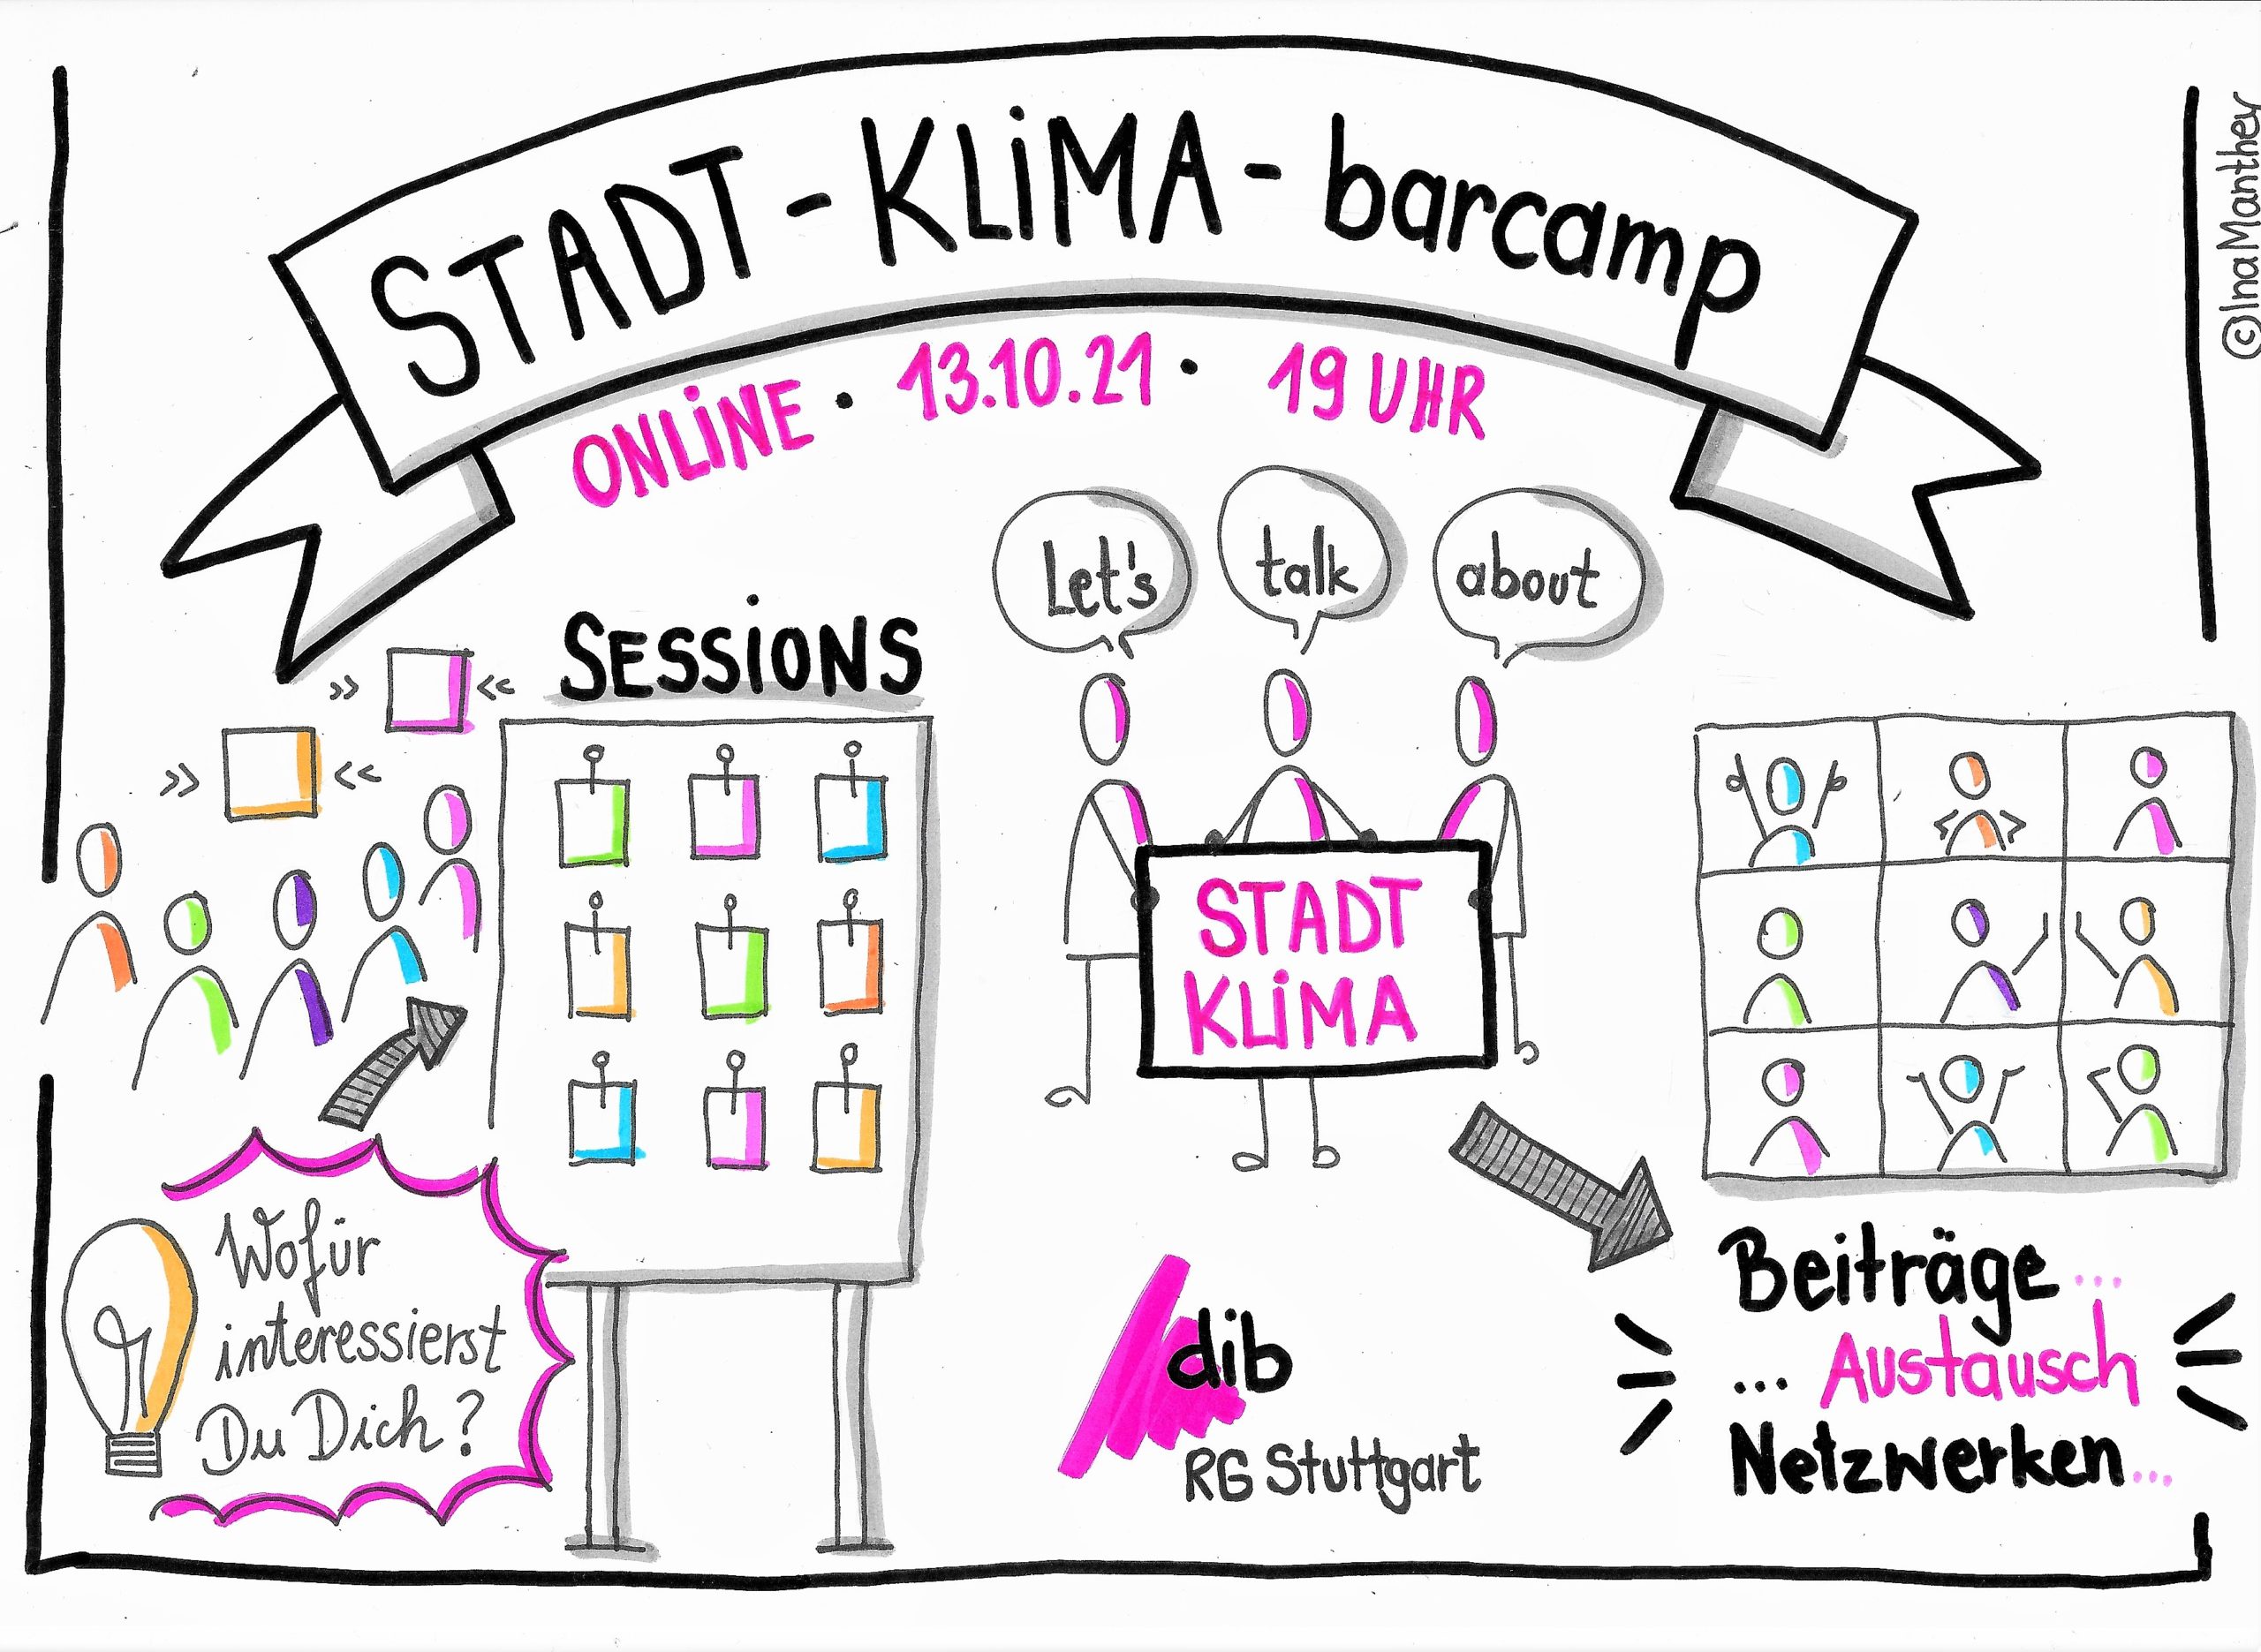 STADT-KLiMA-barcamp
ONLiNE · 13.10.21 · 19 UHR
©InaManthey
Let's
talk
about
SESSiONS
STADT
KLiMA
Wofür
interessierst
Du Dich?
dib
RG Stuttgart
Beiträge...
... Austausch
Netzwerken...